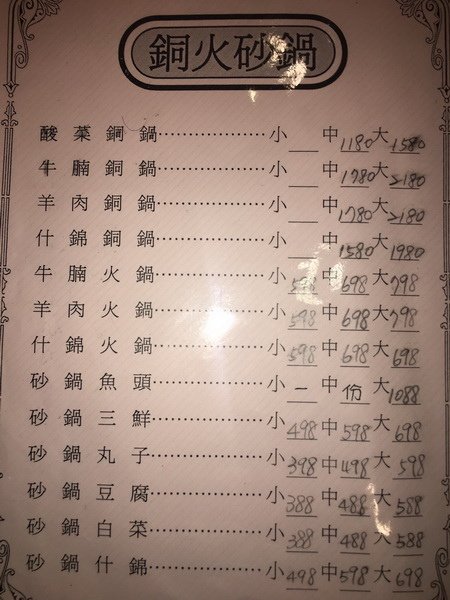 銅火砂鍋
酸菜銅鍋⋯⋯⋯⋯⋯⋯小 中1180大1580
牛腩銅鍋⋯⋯⋯⋯⋯⋯小 中1780大2180
羊肉銅鍋⋯⋯⋯⋯⋯⋯小 中1780大2180
什錦銅鍋⋯⋯⋯⋯⋯⋯小 中1580大1980
牛腩火鍋⋯⋯⋯⋯⋯⋯小598中698大798
羊肉火鍋⋯⋯⋯⋯⋯⋯小598中698大798
什錦火鍋⋯⋯⋯⋯⋯⋯小598中698大698
砂鍋魚頭⋯⋯⋯⋯⋯⋯小一中份大1088
砂鍋三鮮⋯⋯⋯⋯⋯⋯小498中598大698
砂鍋丸子⋯⋯⋯⋯⋯⋯小398中498大598
砂鍋豆腐⋯⋯⋯⋯⋯⋯小388中488大588
砂鍋白菜⋯⋯⋯⋯⋯⋯小388中488大588
砂鍋什錦⋯⋯⋯⋯⋯⋯小498中598大698